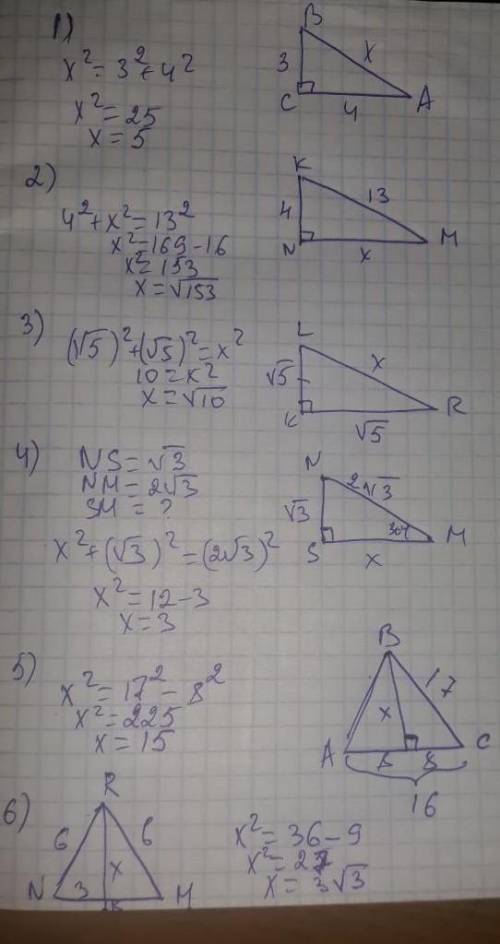 1)
x² = 3² + 4²
x² = 25
x = 5
B
3
x
C
4
A
2)
4² + x² = 13²
x² = 169 - 16
x² = 153
x = √153
K
4
13
N
x
M
3)
(√5)² + (√5)² = x²
10 = x²
x = √10
L
√5
x
K
√5
R
4)
NS = √3
NM = 2√3
SM = ?
x² + (√3)² = (2√3)²
x² = 12 - 3
x = 3
N
√3
2√3
S
x
M
5)
x² = 17² - 8²
x² = 225
x = 15
B
x
17
A
8
C
16
6)
R
6
6
x
N
3
M
x² = 36 - 9
x² = 27
x = 3√3